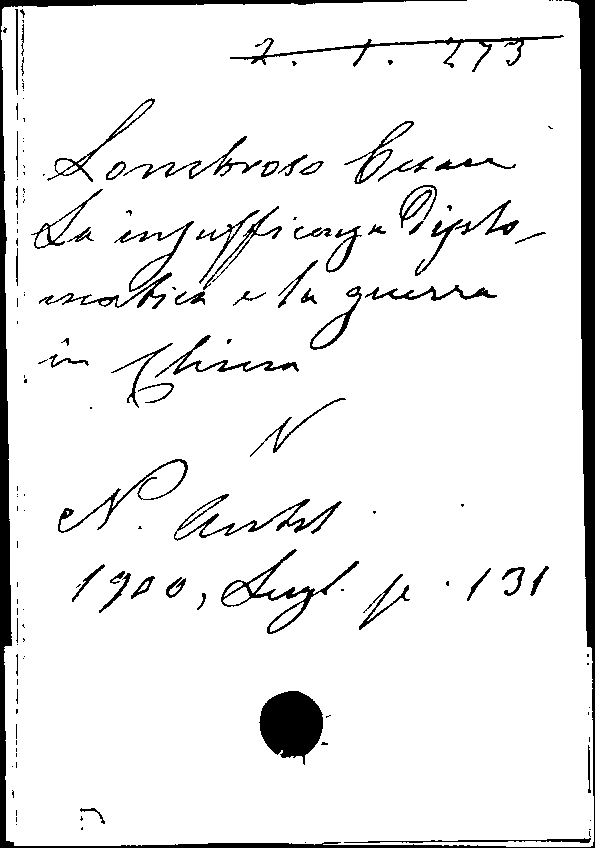 2. 1. 273
Lombroso Cesare
La insufficenza Diplo-
matica e la guerra
in China
N
N. Antol.
1900, Lugl. p. 131